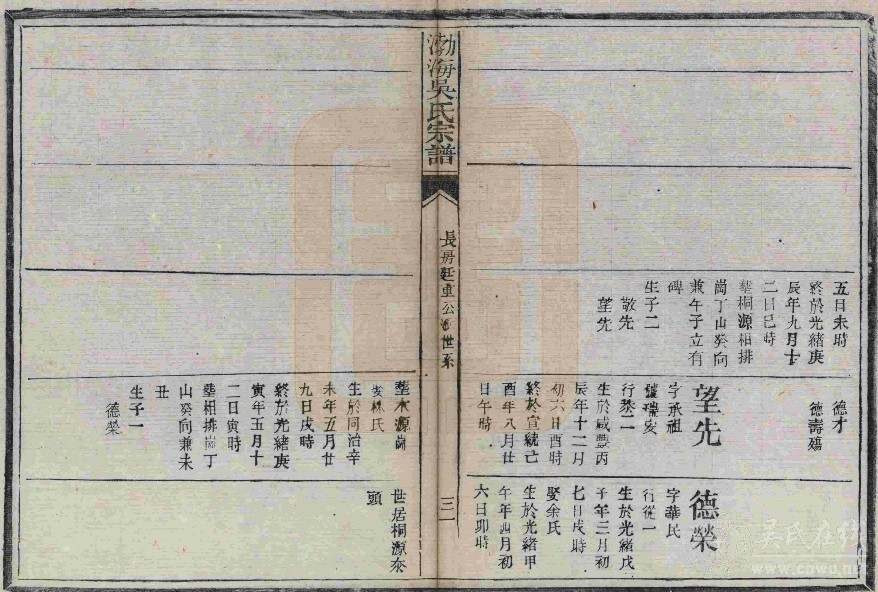 五日未時
終於光緒庚
辰年九月十
二日巳時
塟桐源相排
崗丁山癸向
兼午子立有
碑
生子二
敬先
望先
德才
德壽殤
望先
字承祖
行黎二
生於咸豐丙
辰年十二月
初六日酉時
終於宣統己
酉年八月廿
日午時
德榮
字華民
行從一
生於光緒戊
子年三月初
七日戌時
娶余氏
生於光緒甲
午年四月初
六日卯時
渤海吳氏宗譜
長房廷重公世系
三一
塟水源崗
娶林氏
生於同治辛
未年五月廿
九日戌時
終於光緒庚
寅年五月十
二日寅時
塟相排崗丁
山癸向兼未
丑
生子一
德榮
世居桐源奈
頭
吳氏在线
www.cnwu.n